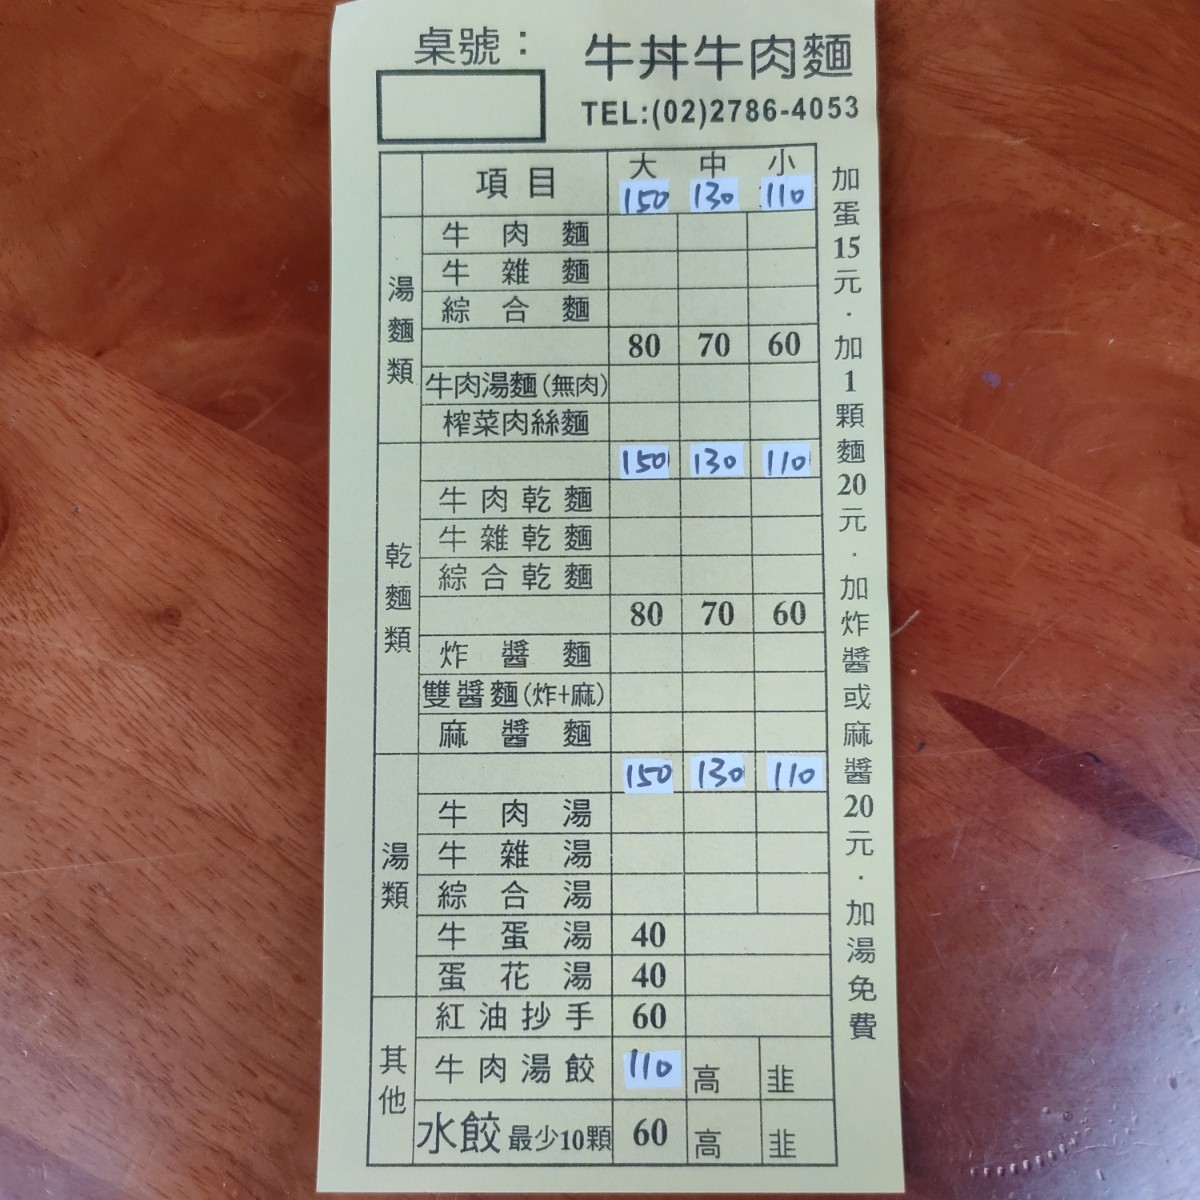 桌號：
牛丼牛肉麵
TEL:(02)2786-4053
項目 大 中 小
150 130 110
湯麵類
牛肉麵
牛雜麵
綜合麵
80 70 60
牛肉湯麵(無肉)
榨菜肉絲麵
乾麵類
150 130 110
牛肉乾麵
牛雜乾麵
綜合乾麵
80 70 60
炸醬麵
雙醬麵(炸+麻)
麻醬麵
湯類
150 130 110
牛肉湯
牛雜湯
綜合湯
牛蛋湯 40
蛋花湯 40
其他
紅油抄手 60
牛肉湯餃 110 高 韭
水餃 最少10顆 60 高 韭
加蛋15元．加1顆麵20元．加炸醬或麻醬20元．加湯免費